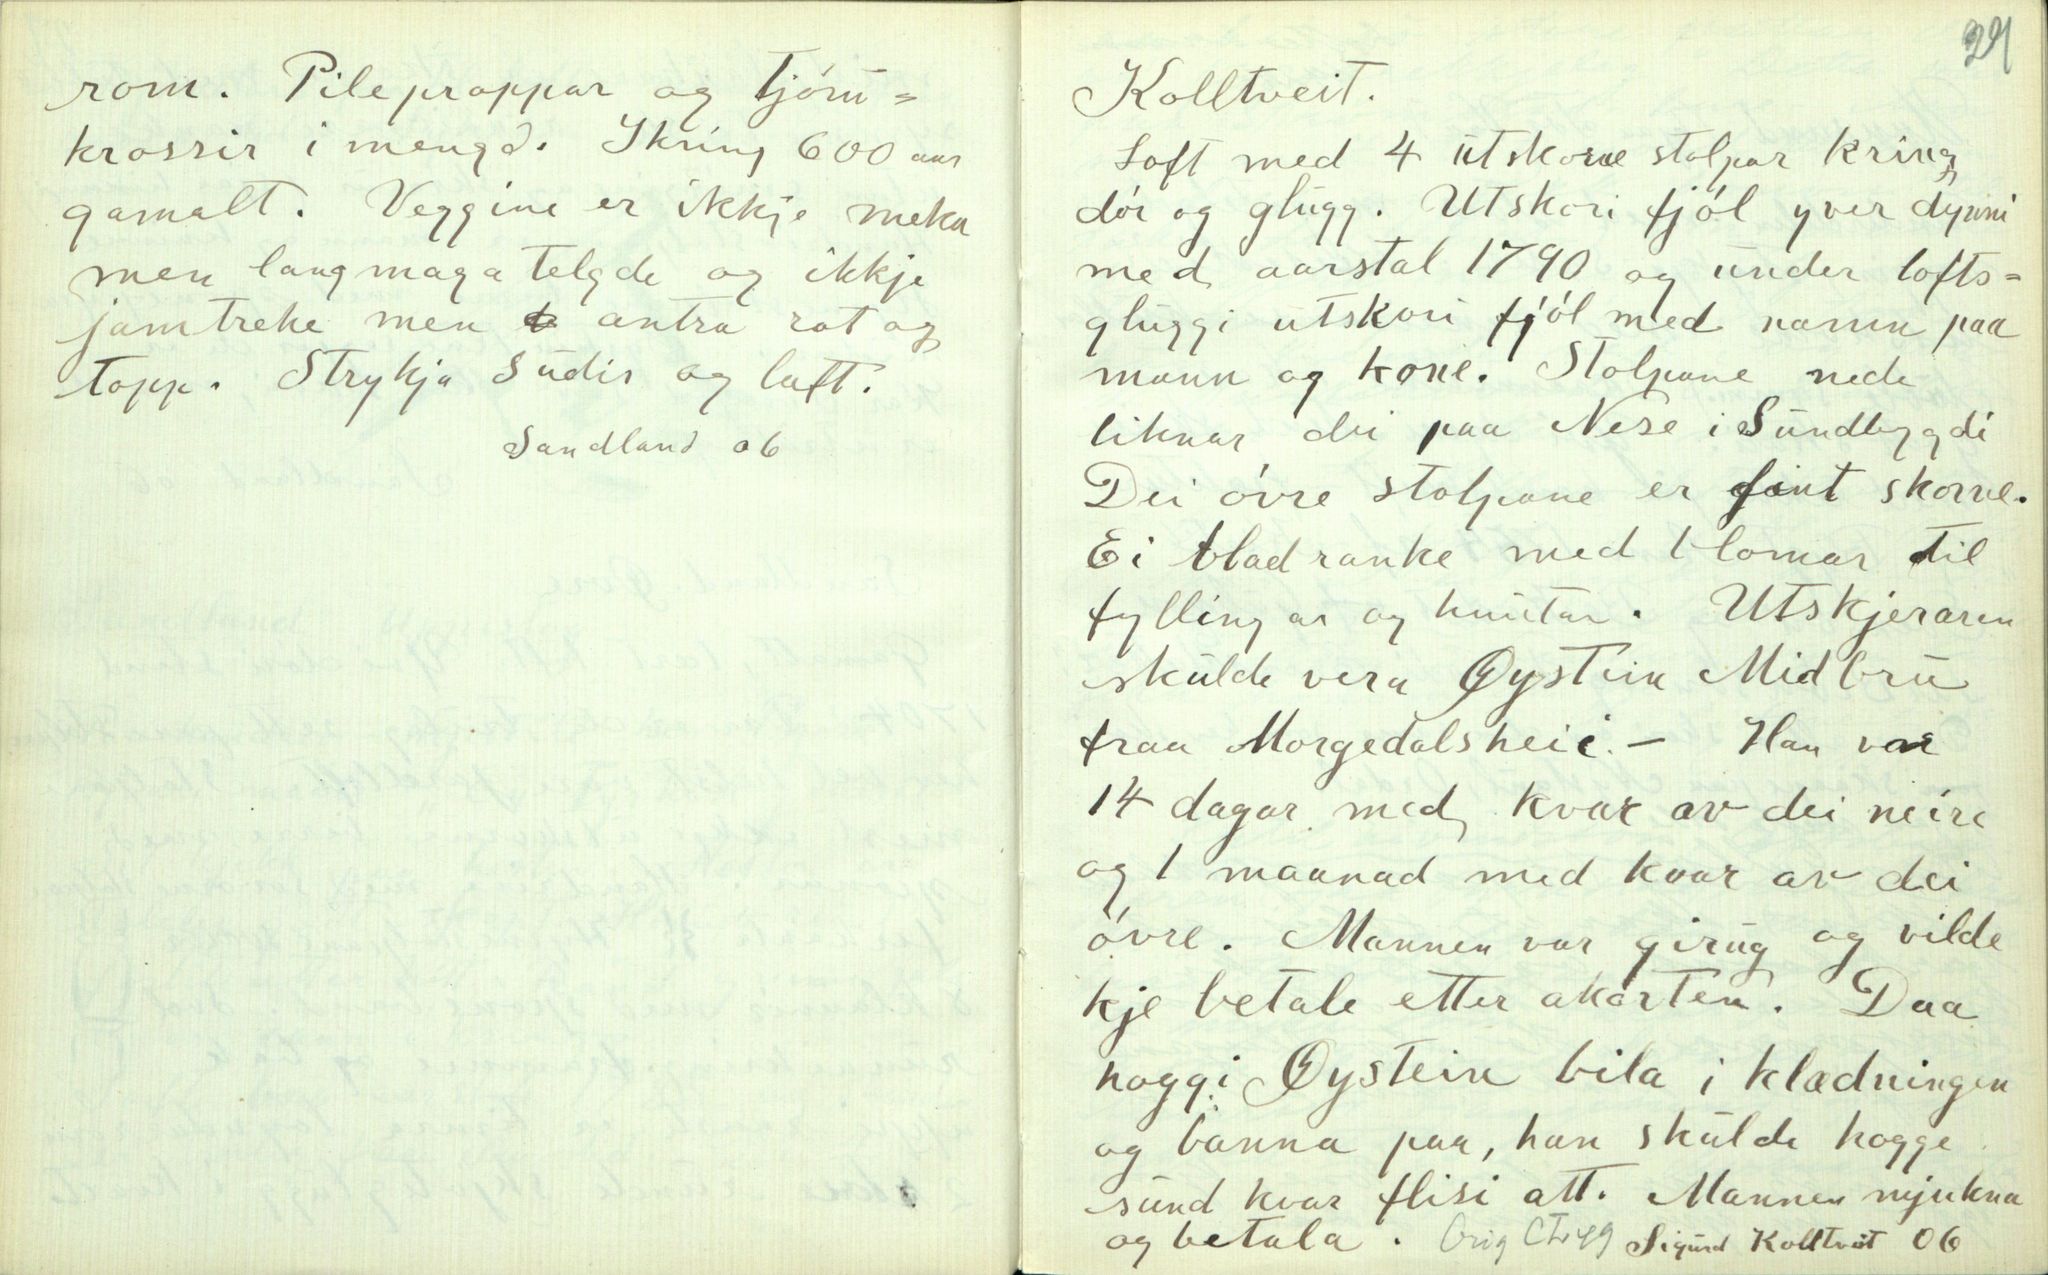 rom. Pileproppar og tjóru-
krossir i mengd. Ikring 600 aar
gamalt. Veggine er ikkje meka
men langmaga telgde og ikkje
jamtreke men antra rot og
topp. Strykja Sudir og laft.
Sandland 06
29
Kolltveit.
Loft med 4 utskorne stolpar kring
dór og glugg. Utskori fjól yver dynni
med aarstal 1790 og under lofts-
gluggi utskori fjól med namn paa
mann og kone. Stolpane nede
liknar dei paa Nese i Sundbygdi
Dei óvre stolpane er fint skorne.
Ei bladranke med blomar til
fyllingar og huntar. Utskjeraren
skulde vera Øystein Midbru
fraa Morgedalsheii. — Han var
14 dagar med kvar av dei neire
og 1 maanad med kvar av dei
óvre. Mannen var girug og vilde
kje betale etter akorten. Daa
hoggi Øystein bila i klædningen
og banna paa, han skulde hogge
sund kvar flisi att. Mannen mjukna
og betala. Orig Sigurd Kolltveit 06